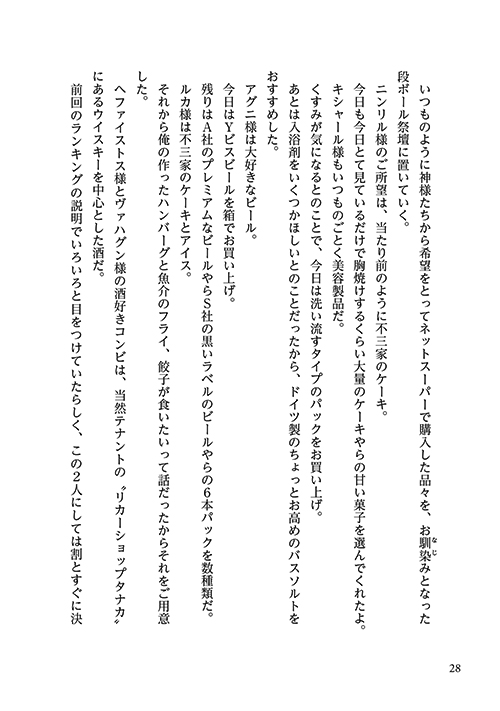 いつものように神様たちから希望をとってネットスーパーで購入した品々を、お馴染みとなった
段ボール祭壇に置いていく。
ニンリル様のご所望は、当たり前のように不三家のケーキ。
今日も今日とて見ているだけで胸焼けするくらい大量のケーキやらの甘い菓子を選んでくれたよ。
キシャール様もいつものごとく美容製品だ。
くすみが気になるとのことで、今日は洗い流すタイプのパックをお買い上げ。
あとは入浴剤をいくつかほしいとのことだったから、ドイツ製のちょっとお高めのバスソルトを
おすすめした。
アグニ様は大好きなビール。
今日はYビスビールを箱でお買い上げ。
残りはA社のプレミアムなビールやらS社の黒いラベルのビールやらの6本パックを数種類だ。
ルカ様は不三家のケーキとアイス。
それから俺の作ったハンバーグと魚介のフライ、餃子が食いたいって話だったからそれをご用意
した。
ヘファイストス様とヴァハグン様の酒好きコンビは、当然テナントの〝リカーショップタナカ〟
にあるウイスキーを中心とした酒だ。
前回のランキングの説明でいろいろと目をつけていたらしく、この2人にしては割とすぐに決
なじ
28